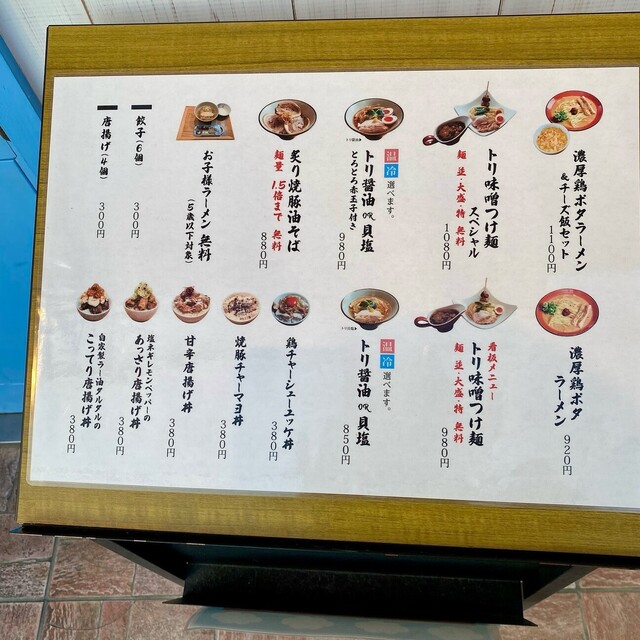 濃厚鶏ポタラーメン
&チーズ飯セット
1100円
トリ味噌つけ麺
スペシャル
麺 並・大盛・特 無料
1080円
温
冷
選べます。
トリ醤油 OR 貝塩
とろとろ赤玉子付き
980円
炙り焼豚油そば
麺量 1.5倍まで 無料
880円
お子様ラーメン 無料
(5歳以下対象)
餃子(6個)
300円
唐揚げ(4個)
300円
濃厚鶏ポタ
ラーメン
920円
看板メニュー
トリ味噌つけ麺
麺 並・大盛・特 無料
980円
温
冷
選べます。
トリ醤油 OR 貝塩
850円
鶏チャーシューユッケ丼
380円
焼豚チャーマヨ丼
380円
甘辛唐揚げ丼
380円
塩ネギレモンペッパーの
あっさり唐揚げ丼
380円
自家製ラー油タルタルの
こってり唐揚げ丼
380円